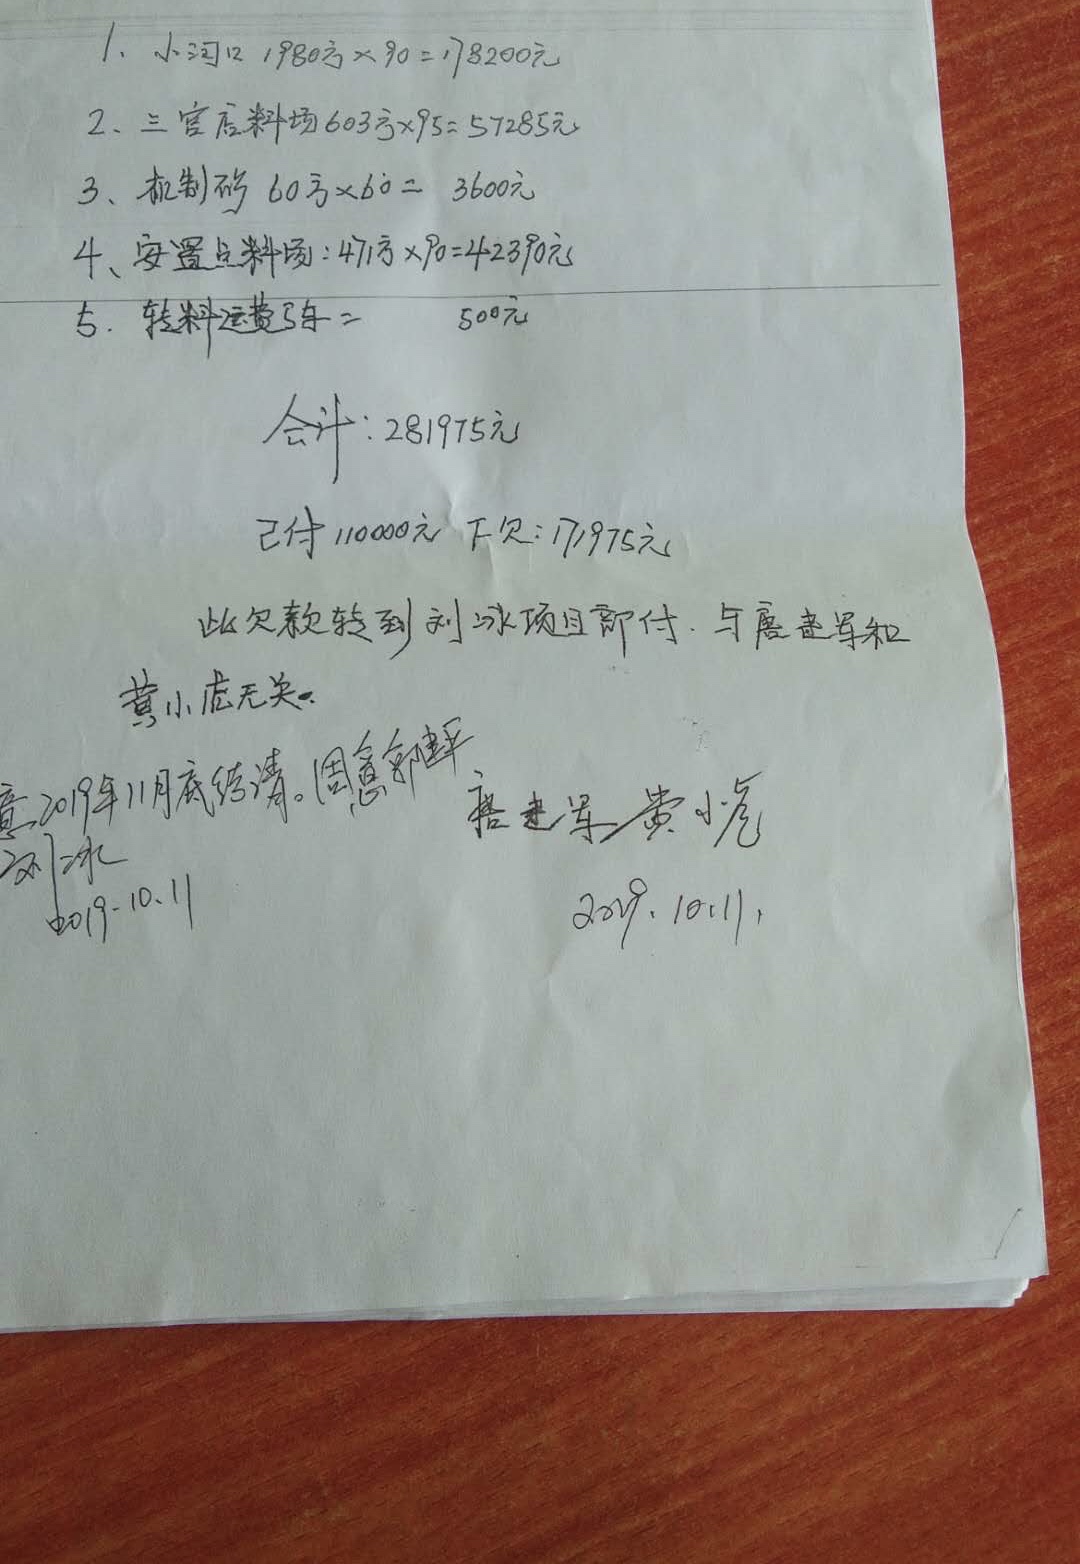 1、小河口 1980方×90=178200元
2、三官店料场603方×95=57285元
3、机制砂 60方×60= 3600元
4、安置点料场:471方×90=42390元
5.转料运费5车= 500元
合计:281975元
已付110000元 下欠:171975元
此欠款转到刘冰项目部付.与唐建军和
黄小虎无关.
意2019年11月底结清。同意郭建平
刘冰
2019.10.11
唐建军 黄小虎
2019.10.11.